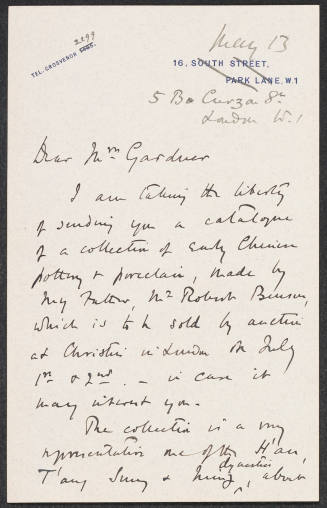 2299
TEL. GROSVENOR
May 13
16, SOUTH STREET,
PARK LANE, W.1
5 B Curzon St
London W.1
Dear Mrs Gardner
I am taking the liberty
of sending you a catalogue
of a collection of Early Chinese
pottery & porcelain, made by
my Father, Mr Robert Benson,
which is to be sold by auction
at Christies in London on July
1st & 2nd. – in case it
may interest you –
The collection is a very
representative one of the Han,
dynasties
T'ang Sung & Ming, about